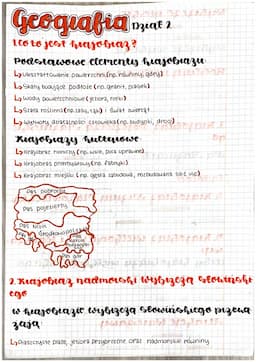 Geografia DZIAŁ 2
1. Co to jest krajobraz?
Podstawowe elementy krajobrazu:
↳ Ukształtowanie powierzchni (np. niziny, góry)
↳ Skały budujące podłoże (np. granit, piasek)
↳ Wody powierzchniowe (jeziora, rzeki)
↳ Szata roślinna (np. lasy, łąki) i świat zwierząt
↳ Wytwory działalności człowieka (np. budynki, drogi)
Krajobrazy kulturowe
↳ krajobraz rolniczy (np. wsie, pola uprawne)
↳ krajobraz przemysłowy (np. fabryki)
↳ krajobraz miejski (np. gęsta zabudowa, rozbudowana sieć ulic)
Pas pobrzeży
Pas pojezierzy
Pas Nizin
Środkowopolskich
Pas wyżyn
Pas gór
2. Krajobraz nadmorski Wybrzeża Słowińskiego
ego
W krajobrazie Wybrzeża Słowińskiego przewa
żają
↳ Piaszczyste plaże, jeziora przybrzeżne oraz nadmorskie równiny